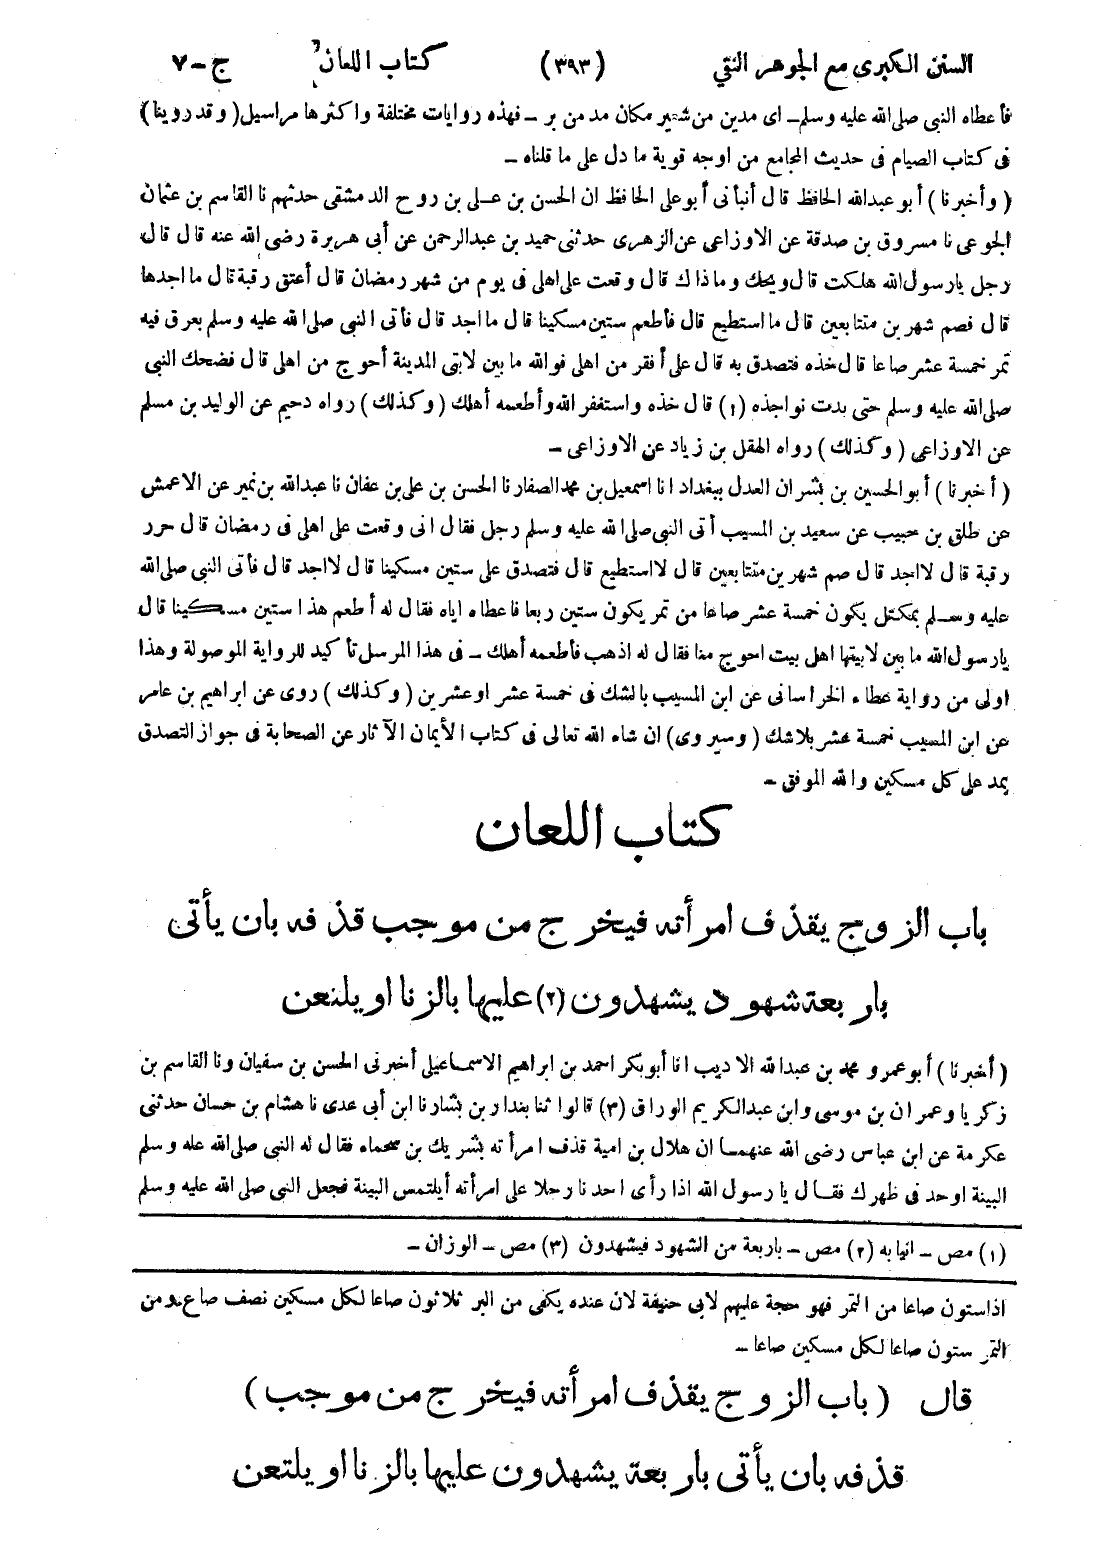 السنن الكبرى مع الجوهر النقي (٣٩٣) كتاب اللعان ج-٧
فأعطاه النبى صلى الله عليه وسلم ـ اى مدين من شعير مكان مد من بر ـ فهذه روايات مختلفة واكثرها مراسيل (وقد روينا)
فى كتاب الصيام فى حديث المجامع من اوجه قوية ما دل على ما قلناه ـ
(وأخبرنا) أبو عبدالله الحافظ قال أنبأنى أبو على الحافظ ان الحسن بن على بن روح الدمشقى حدثهم نا القاسم بن عثمان
الجوعى نا مسروق بن صدقة عن الاوزاعى عن الزهرى حدثنى حميد بن عبدالرحمن عن أبى هريرة رضى الله عنه قال قال
رجل يارسول الله هلكت قال ويحك وماذاك قال وقعت على اهلى فى يوم من شهر رمضان قال أعتق رقبة قال ما اجدها
قال فصم شهرين متتابعين قال ما استطيع قال فأطعم ستين مسكينا قال ما اجد قال فأتى النبى صلى الله عليه وسلم بعرق فيه
تمر خمسة عشر صاعا قال خذه فتصدق به قال على أفقر من اهلى فوالله ما بين لابتى المدينة أحوج من اهلى قال فضحك النبى
صلى الله عليه وسلم حتى بدت نواجذه (١) قال خذه واستغفر الله وأطعمه أهلك (وكذلك) رواه دحيم عن الوليد بن مسلم
عن الاوزاعى (وكذلك) رواه الهقل بن زياد عن الاوزاعى ـ
(أخبرنا) أبو الحسين بن بشران العدل ببغداد انا اسمعيل بن محمد الصفار نا الحسن بن على بن عفان نا عبدالله بن نمير عن الاعمش
عن طلق بن حبيب عن سعيد بن المسيب أتى النبى صلى الله عليه وسلم رجل فقال انى وقعت على اهلى فى رمضان قال حرر
رقبة قال لا اجد قال صم شهرين متتابعين قال لا استطيع قال فتصدق على ستين مسكينا قال لا اجد قال فأتى النبى صلى الله
عليه وسلم بمكتل يكون خمسة عشر صاعا من تمر يكون ستين ربعا فاعطاه اياه فقال له أطعم هذا ستين مسكينا قال
يارسول الله ما بين لابيتها اهل بيت احوج منا فقال له اذهب فأطعمه أهلك ـ فى هذا المرسل تأكيد للرواية الموصولة وهذا
اولى من رواية عطاء الخراسانى عن ابن المسيب بالشك فى خمسة عشر او عشرين (وكذلك) روى عن ابراهيم بن عامر
عن ابن المسيب خمسة عشر بلاشك (وسيروى) ان شاء الله تعالى فى كتاب الأيمان الآثار عن الصحابة فى جواز التصدق
بمد على كل مسكين والله الموفق ـ
كتاب اللعان
باب الزوج يقذف امرأته فيخرج من موجب قذفه بان يأتى
باربعة شهود يشهدون (٢) عليها بالزنا او يلتعن
(أخبرنا) أبو عمرو محمد بن عبدالله الاديب انا أبوبكر احمد بن ابراهيم الاسماعيلى أخبرنى الحسن بن سفيان ونا القاسم بن
زكريا وعمران بن موسى وابن عبدالكريم الوراق (٣) قالوا ثنا بندار بن بشار نا ابن أبى عدى نا هشام بن حسان حدثنى
عكرمة عن ابن عباس رضى الله عنهما ان هلال بن امية قذف امرأته بشريك بن سحماء فقال له النبى صلى الله عله وسلم
البينة اوحد فى ظهرك فقال يا رسول الله اذا رأى احدنا رجلا على امرأته أيلتمس البينة فجعل النبى صلى الله عليه وسلم
(١) مص ـ انيابه (٢) مص ـ باربعة من الشهود فيشهدون (٣) مص ـ الوزان ـ
اذا ستون صاعا من التمر فهو حجة عليهم لابى حنيفة لان عنده يكفى من البر ثلاثون صاعا لكل مسكين نصف صاع ومن
التمر ستون صاعا لكل مسكين صاعا ـ
قال (باب الزوج يقذف امرأته فيخرج من موجب)
قذفه بان يأتى باربعة يشهدون عليها بالزنا او يلتعن